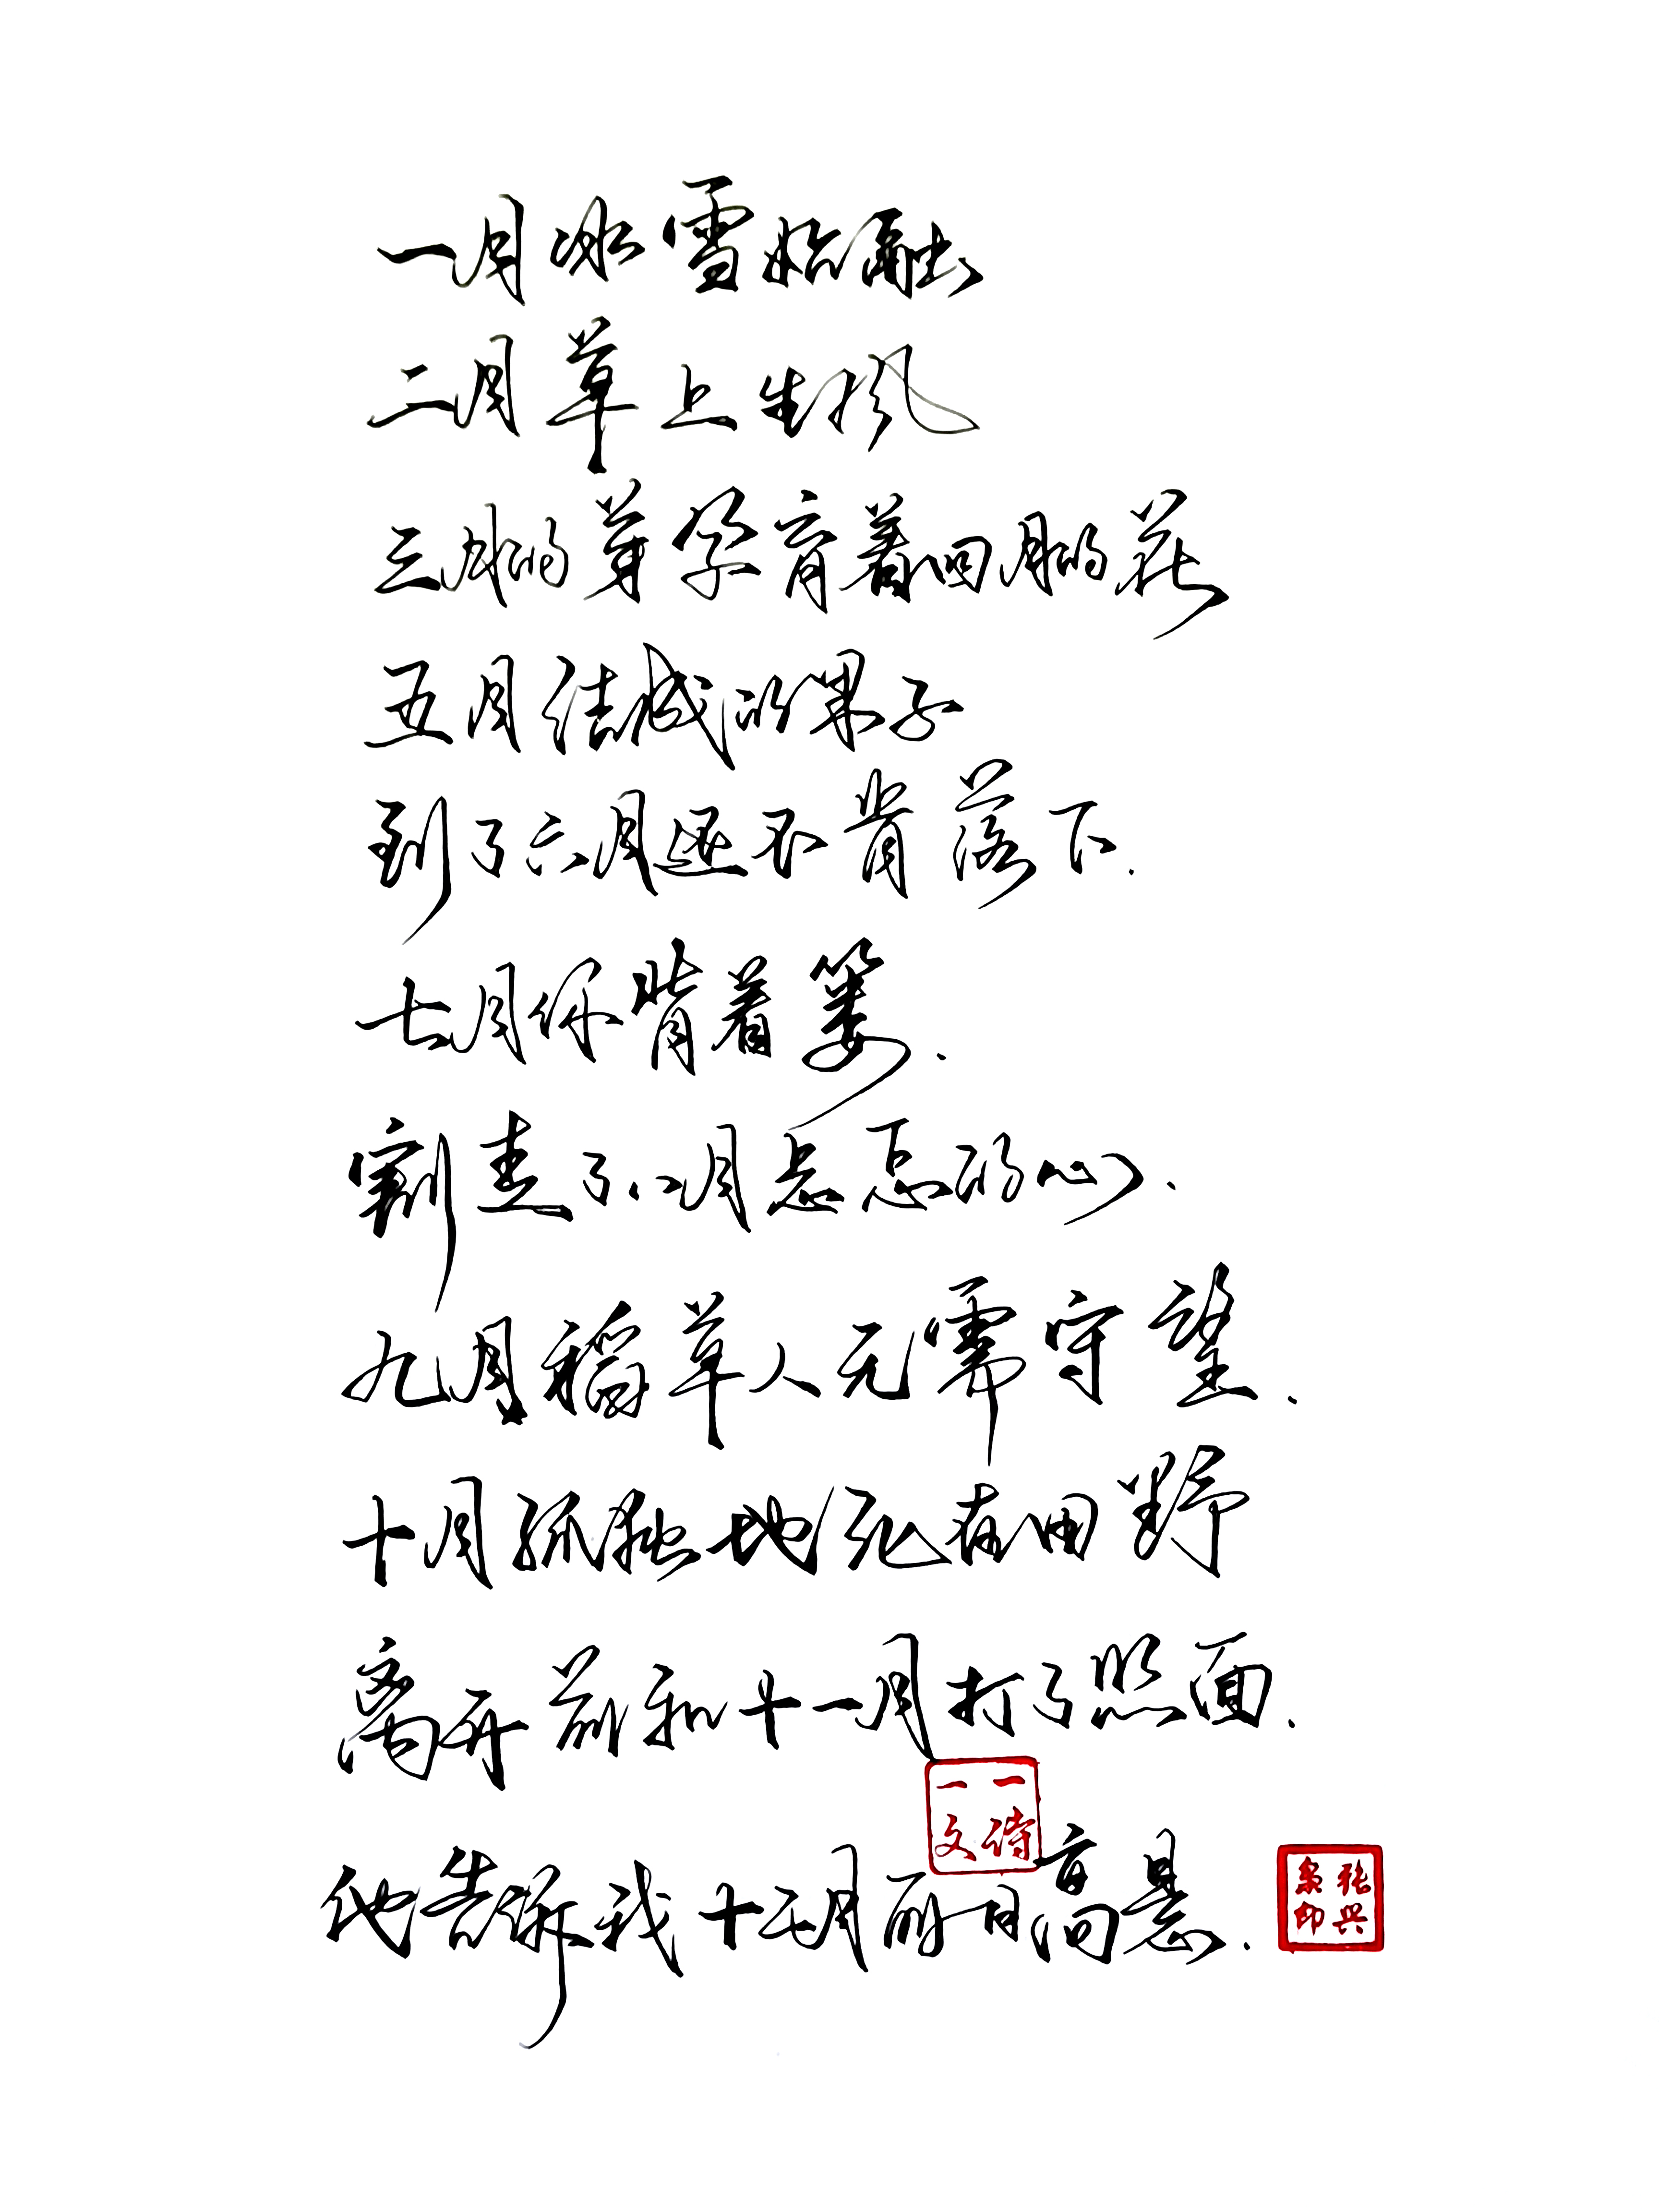 一月冰雪松融
二月草上牧风
三月的芽孕育着四月的花
五月结成的果子
到了六月还不肯落下.
七月你背着篓.
窃走了八月忐忑的心.
九月稻草人无需守望.
十月孤独地死在田野
离开前和十一月打了照面.
一诗一文
他告诉我十二月日高悬.